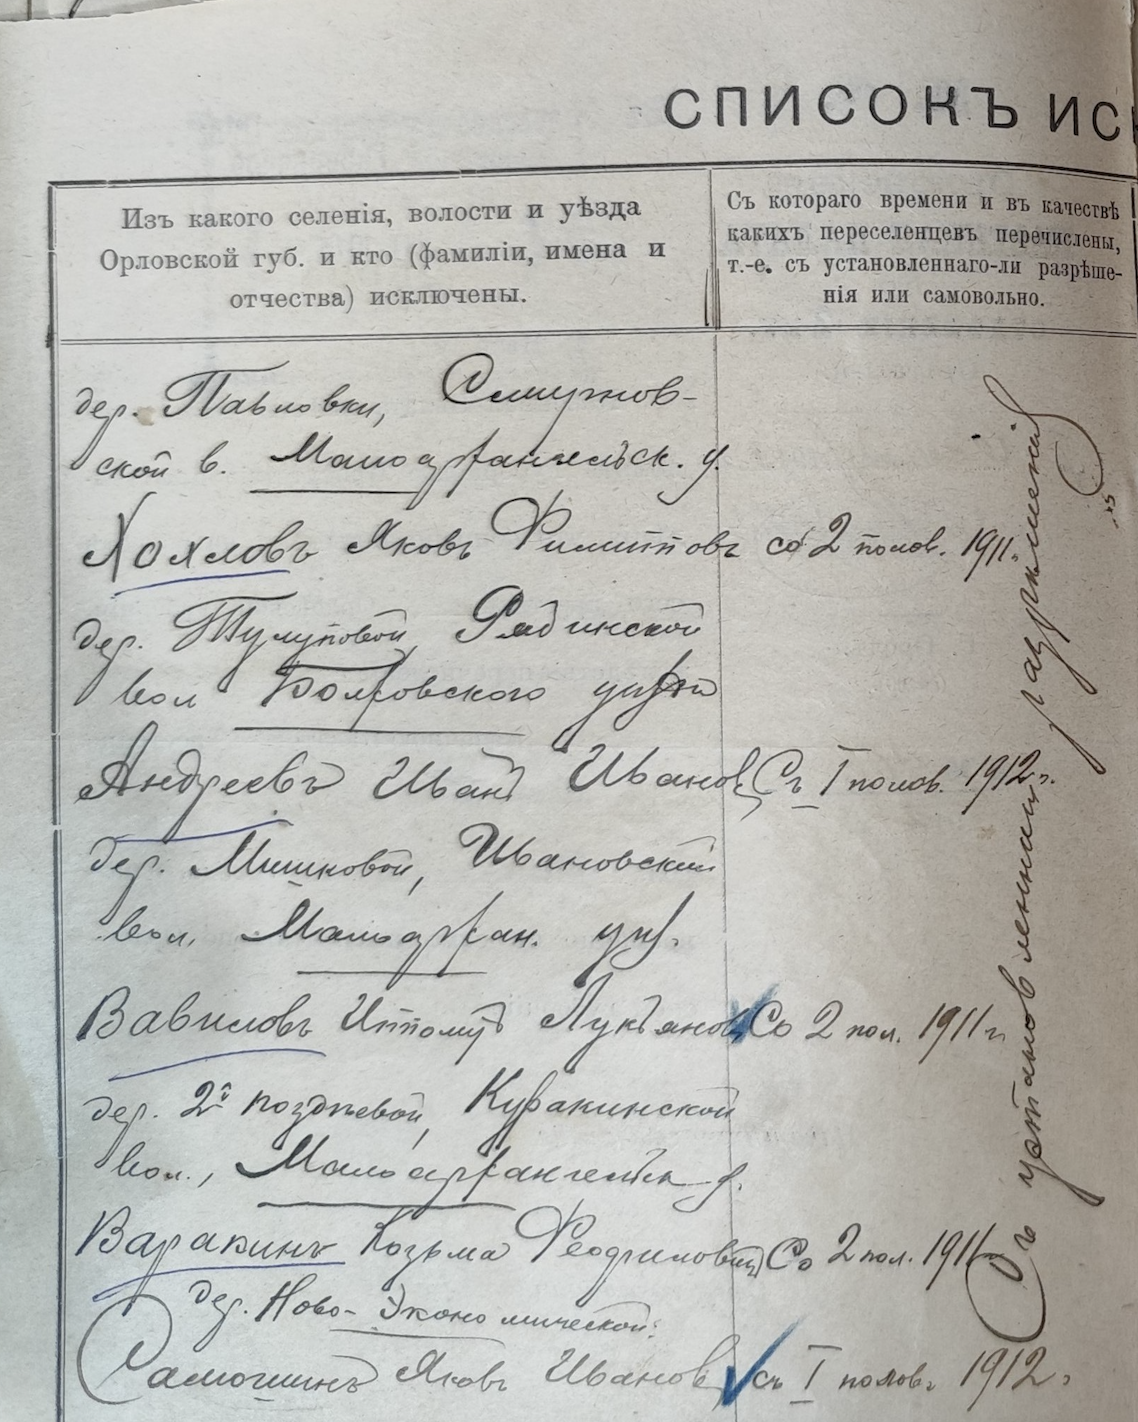 СПИСОКЪ ИС
Изъ какого селенія, волости и уѣзда
Орловской губ. и кто (фамиліи, имена и
отчества) исключены.
Съ котораго времени и въ качествѣ
какихъ переселенцевъ перечислены,
т.-е. съ установленнаго-ли разрѣше-
нія или самовольно.
дер. Павловки, Смирнов-
ской в. Малоархангельск. у.
Хохловъ Яковъ Филипповъ со 2 полов. 1911 г.
дер. Тулуповой,
вол Болховского уѣзда
Андреевъ Иванъ Ивановъ Съ I полов. 1912 г.
дер. Мишковой, Ивановской
вол. Малоархан. уѣз.
Вавиловъ Лукьяновъ Со 2 пол. 1911 г.
дер. 2й Поздѣевой, Куракинской
вол., Малоархангельск у.
Варакинъ Козьма Со 2 пол. 1911 г.
дер. Ново-Экономической.
Самошинъ Яковъ Ивановъ съ I полов. 1912 г.
Съ установленнаго разрѣшенія